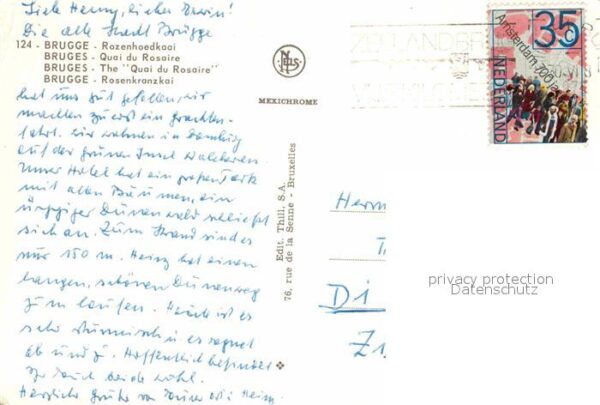 Liebe Henny, lieber Erwin!
Die alte Stadt Brügge
124 - BRUGGE - Rozenhoedkaai
BRUGES - Quai du Rosaire
BRUGES - The "Quai du Rosaire"
BRUGGE - Rosenkranzkai
hat uns gut gefallen, wir
machten zuerst ein Grachten-
fahrt. Wir wohnen in Domburg
auf der grünen Insel Walcheren.
Unser Hotel hat ein großen Park
mit alten Bäumen, ein
üppiger Dünenwald schließt
sich an. Zum Strand sind es
nur 150 m. Heinz hat einen
langen, schönen Dünenweg
zu laufen. Heute ist es
sehr stürmisch u es regnet
ab und zu. Hoffentlich befindet
Ihr Euch beide wohl.
Herzliche Grüße von Eurer Heinz
NELS
MEXICHROME
Edit. Thill, S.A.
76, rue de la Senne - Bruxelles
35c
Amsterdam 700
NEDERLAND
ZEELANDBR
Herrn
Di
privacy protection
Datenschutz